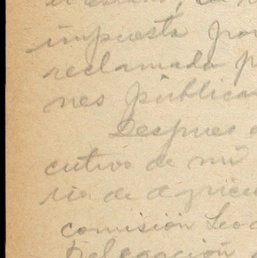 impuesta por
reclamada p
nes publica
Despues
cutivo de mi
ria de agricu
comisión
Delegación